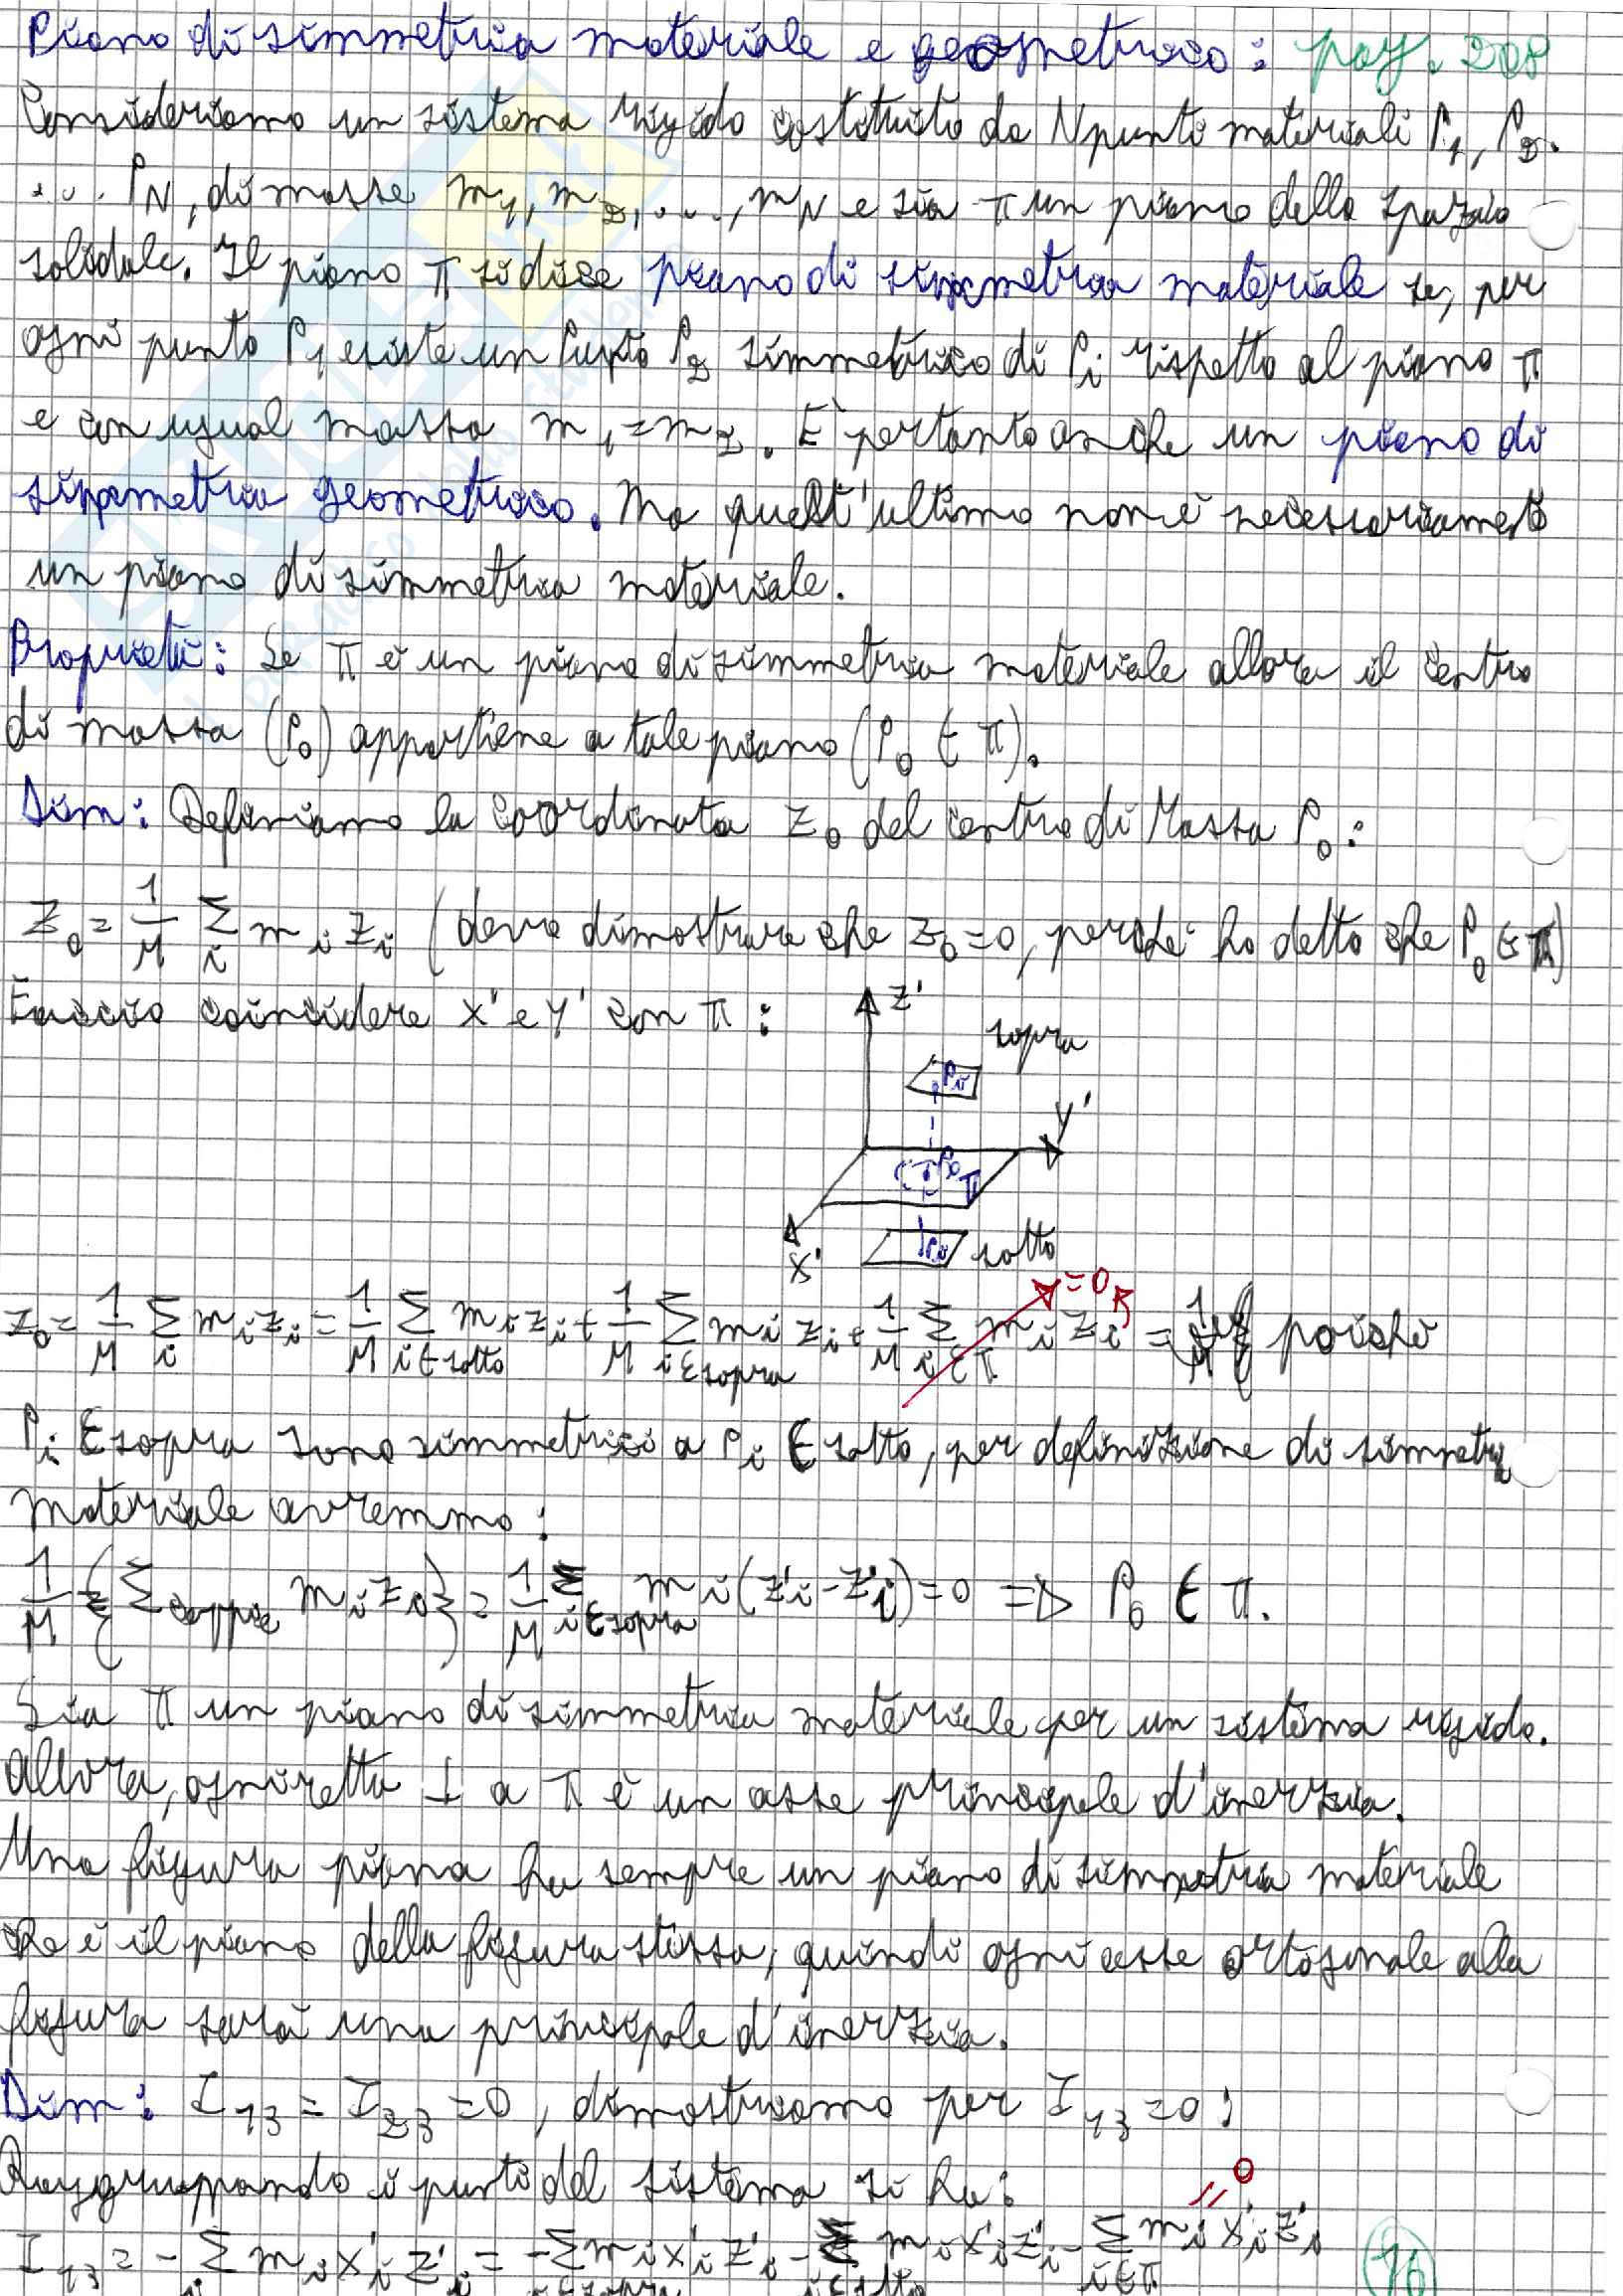 Piano di simmetria materiale e geometrico: pag. 208
Consideriamo un sistema rigido costituito da N punti materiali P1, P2.
... PN, di masse m1, m2, ..., mN e sia π un piano dello spazio
solidale. Il piano π si dice piano di simmetria materiale se, per
ogni punto P1 esiste un Punto P2 simmetrico di Pi rispetto al piano π
e con ugual massa m1=m2. È pertanto anche un piano di
simmetria geometrico. Ma quest'ultimo non è necessariamente
un piano di simmetria materiale.
Proprietà: Se π è un piano di simmetria materiale allora il centro
di massa (P0) appartiene a tale piano (P0 ∈ π).
Dim: Definiamo la coordinata z0 del centro di Massa P0:
z0 = 1/M Σi mi zi (devo dimostrare che z0=0, perché ho detto che P0 ∈ π)
Faccio coincidere x' e y' con π:
z'
sopra
Pi
y'
P0
π
x'
Pi sotto
z0 = 1/M Σi mi zi = 1/M Σi∈sotto mi zi + 1/M Σi∈sopra mi zi + 1/M Σi∈π mi zi =0 = poiché
Pi ∈ sopra sono simmetrici a Pi ∈ sotto, per definizione di simmetria
materiale avremmo:
1/M {Σcoppie mi zi} = 1/M Σi∈sopra mi(z'i-z'i)=0 => P0 ∈ π.
Sia π un piano di simmetria materiale per un sistema rigido.
Allora, ogni retta ⊥ a π è un asse principale d'inerzia.
Una figura piana ha sempre un piano di simmetria materiale
che è il piano della figura stessa, quindi ogni asse ortogonale alla
figura sarà una principale d'inerzia.
Dim: I13 = I23 = 0, dimostriamo per I13 = 0:
Raggruppando i punti del sistema si ha:
I13 = - Σi mi x'i z'i = - Σi∈sopra mi x'i z'i - Σi∈sotto mi x'i z'i - Σi∈π mi x'i z'i = 0
76